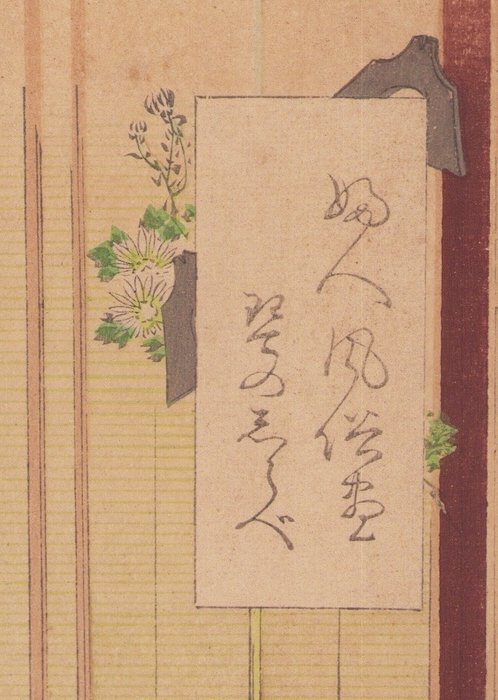 婦人風俗畫
琴の志らべ